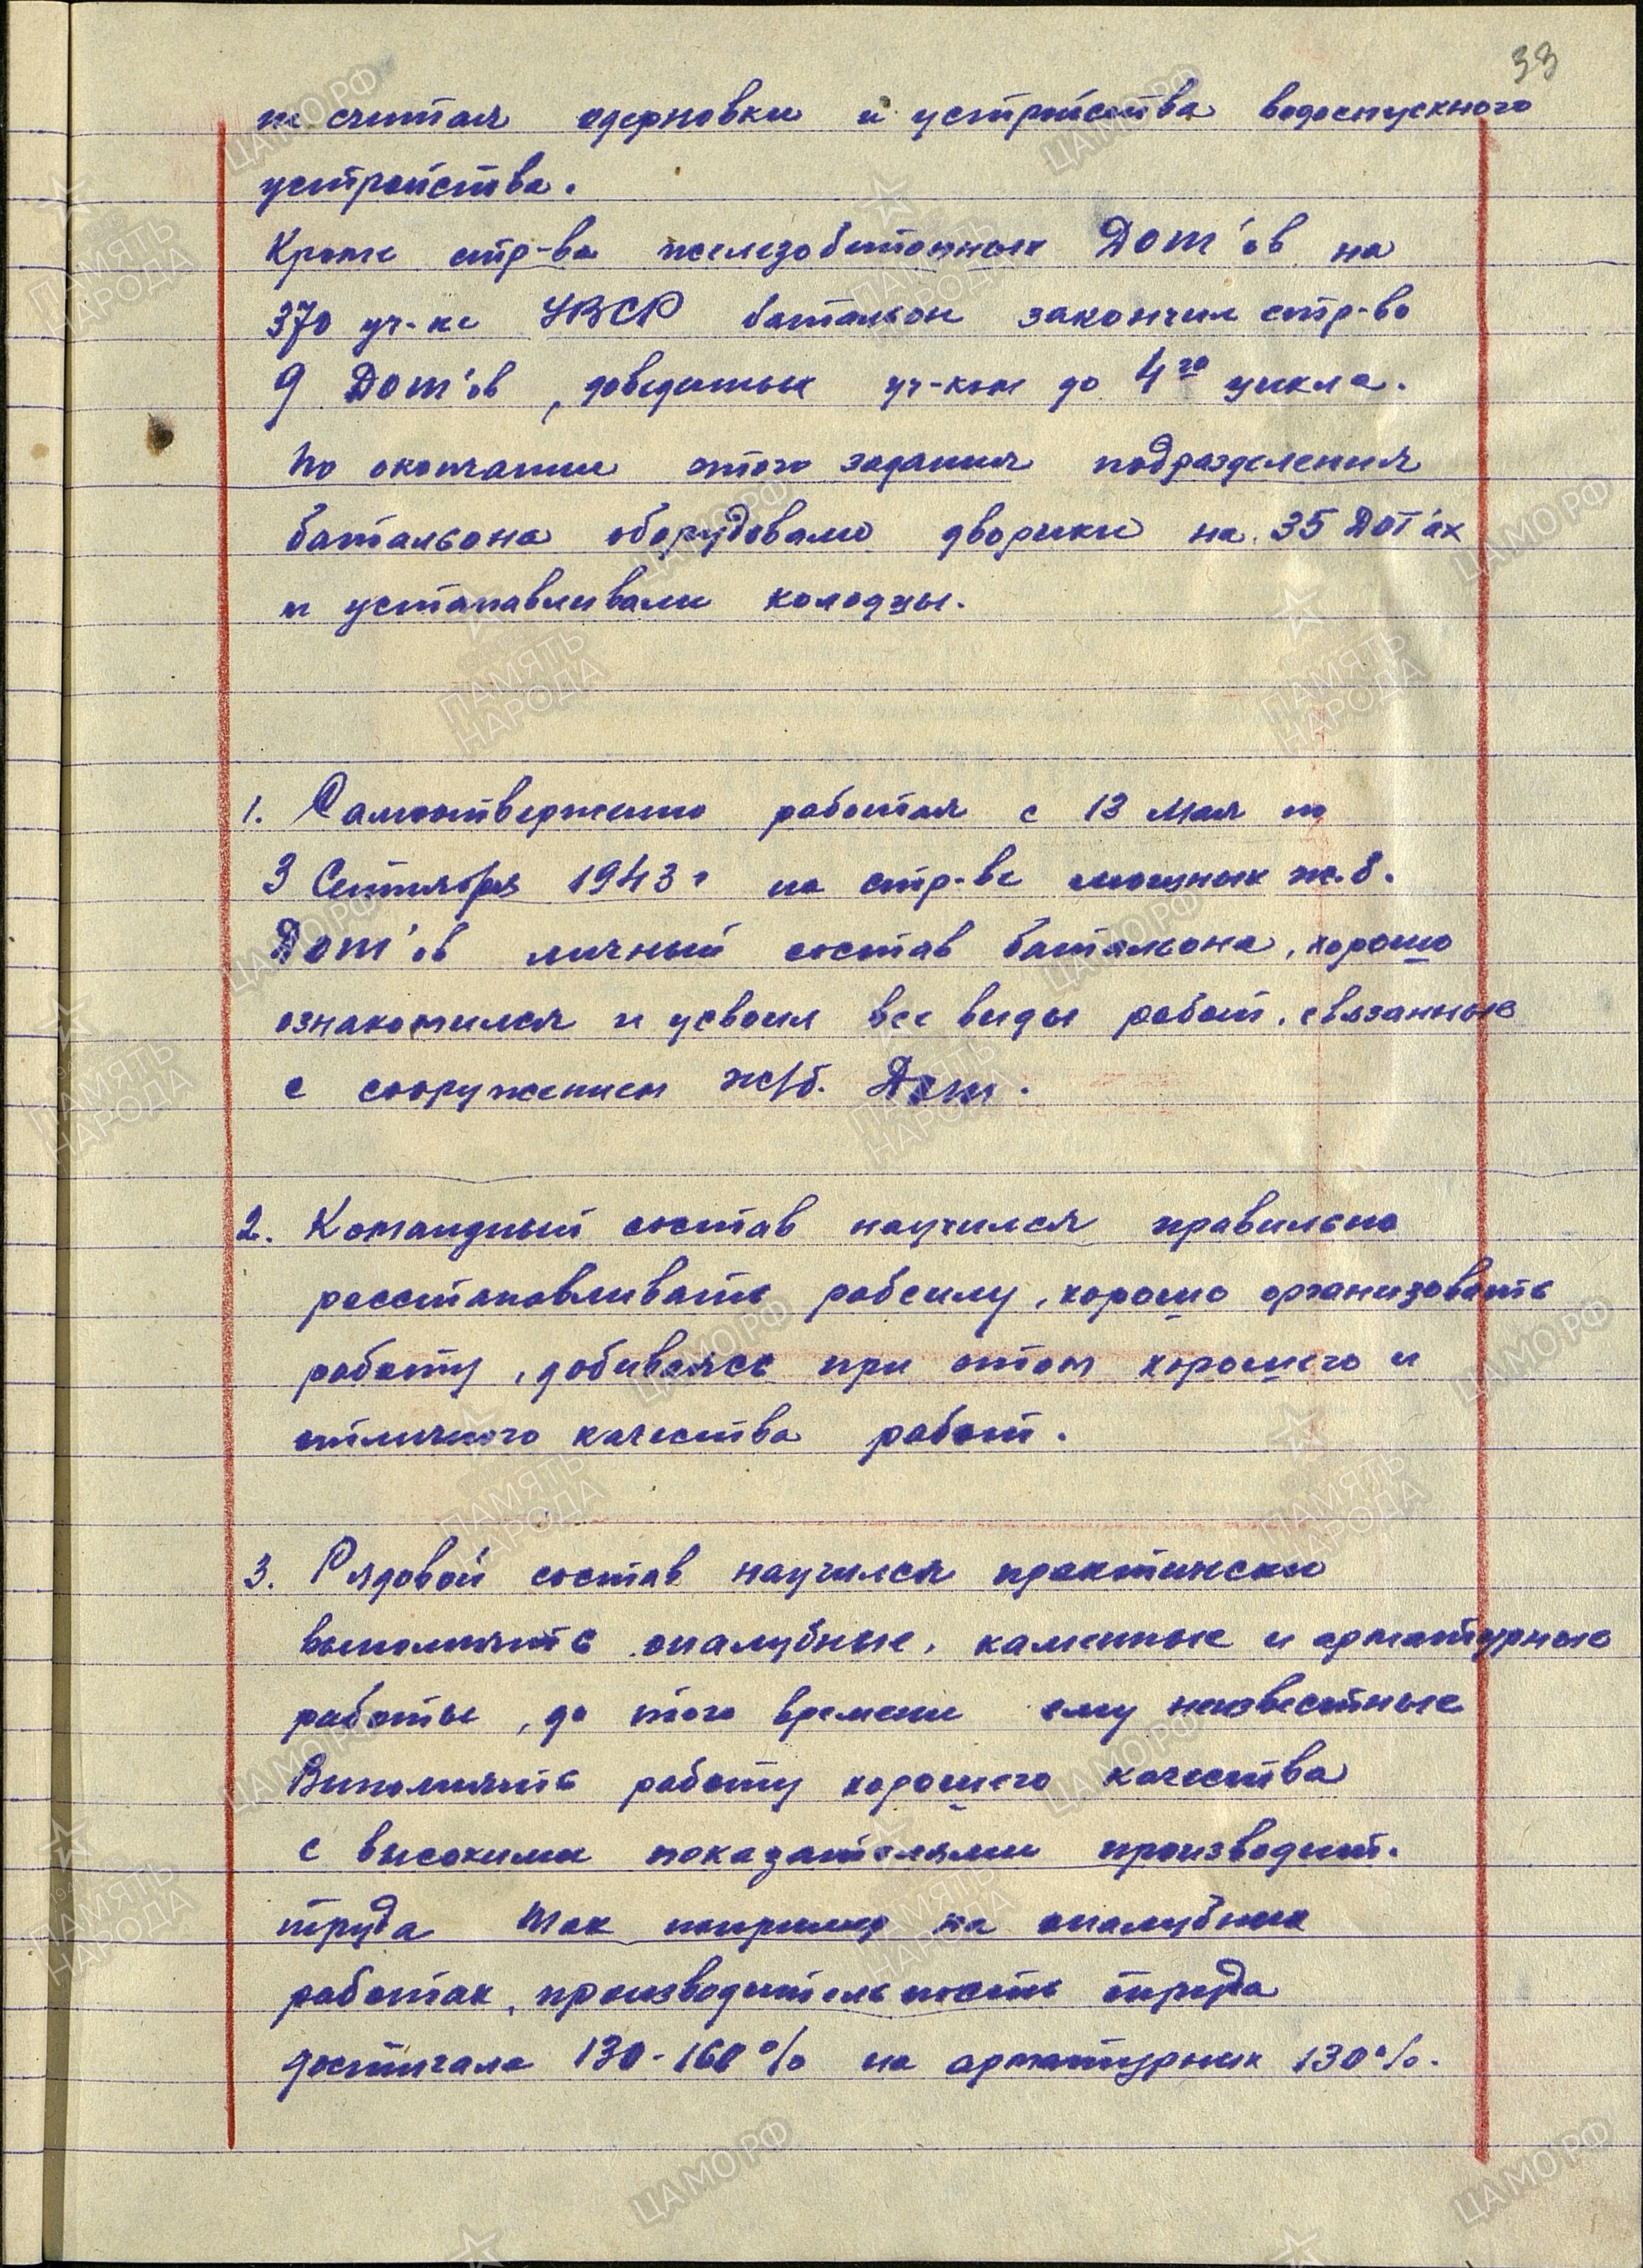 33
не считая одерновки и устройства водоспускного
устройства.
Кроме стр-ва железобетонных Дот'ов на
370 уч-ке УВСР батальон закончил стр-во
9 Дот'ов, доведенных уч-ком до 4го цикла.
По окончании этого задания подразделения
батальона оборудовали дворики на 35 ДОТ'ах
и устанавливали колодцы.
1. Самоотверженно работая с 13 Мая по
3 Сентября 1943 г на стр-ве мощных ж.б.
Дот'ов личный состав батальона, хорошо
ознакомился и усвоил все виды работ, связанные
с сооружением ж/б. Дот.
2. Командный состав научился правильно
расстановливать рабсилу, хорошо организовать
работу, добиваясь при этом хорошего и
отличного качества работ.
3. Рядовой состав научился практически
выполнять опалубные, каменные и арматурные
работы, до этого времени ему неизвестные
Выполнять работу хорошего качества
с высокими показателями производит.
труда Так например на опалубных
работах, производительность труда
достигала 130-160% на арматурных 130%.